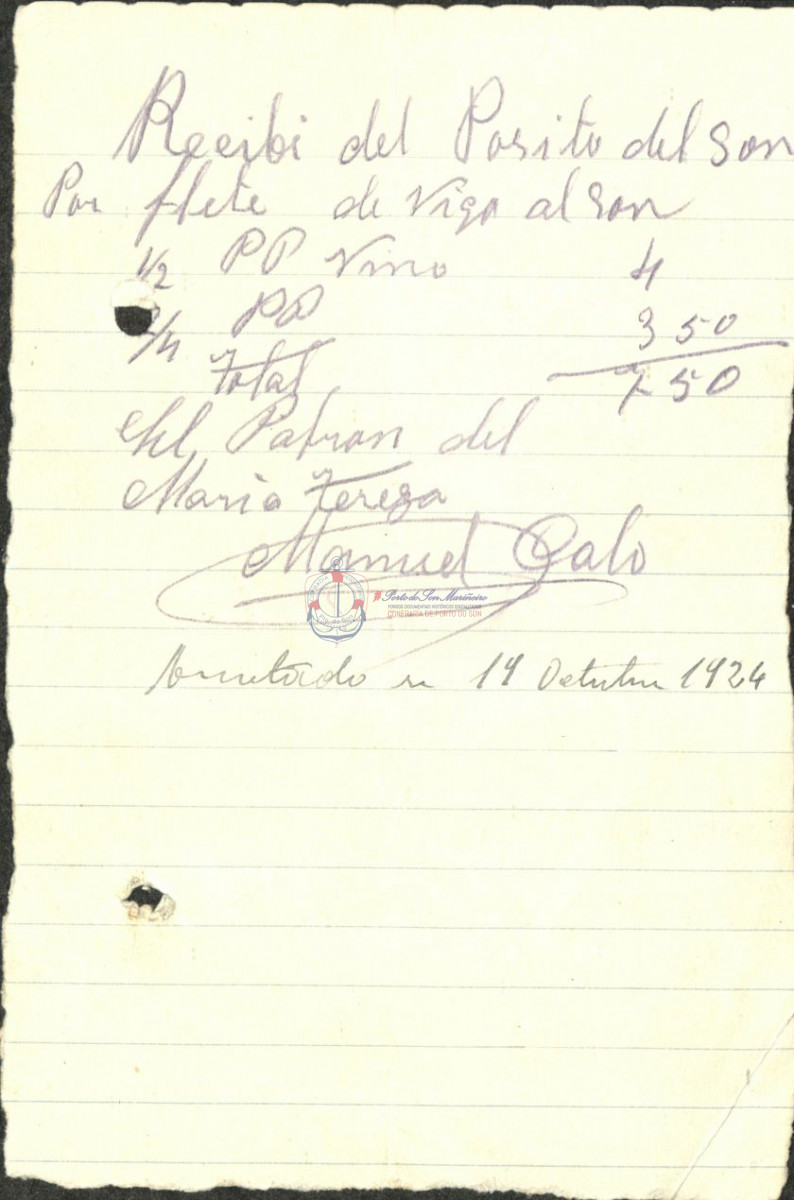 Recibi del Posito del son
Por flete de vigo al son
1/2 PP vino 4
/4 PP 3 50
Total 7 50
El Patron del
Maria Tereza
Manuel Calo
Porto do Son Mariñeiro
FONDOS DOCUMENTAIS HISTÓRICOS DIGITALIZADOS
CONFRARÍA DE PORTO DO SON
Anotado en 14 Octubre 1924